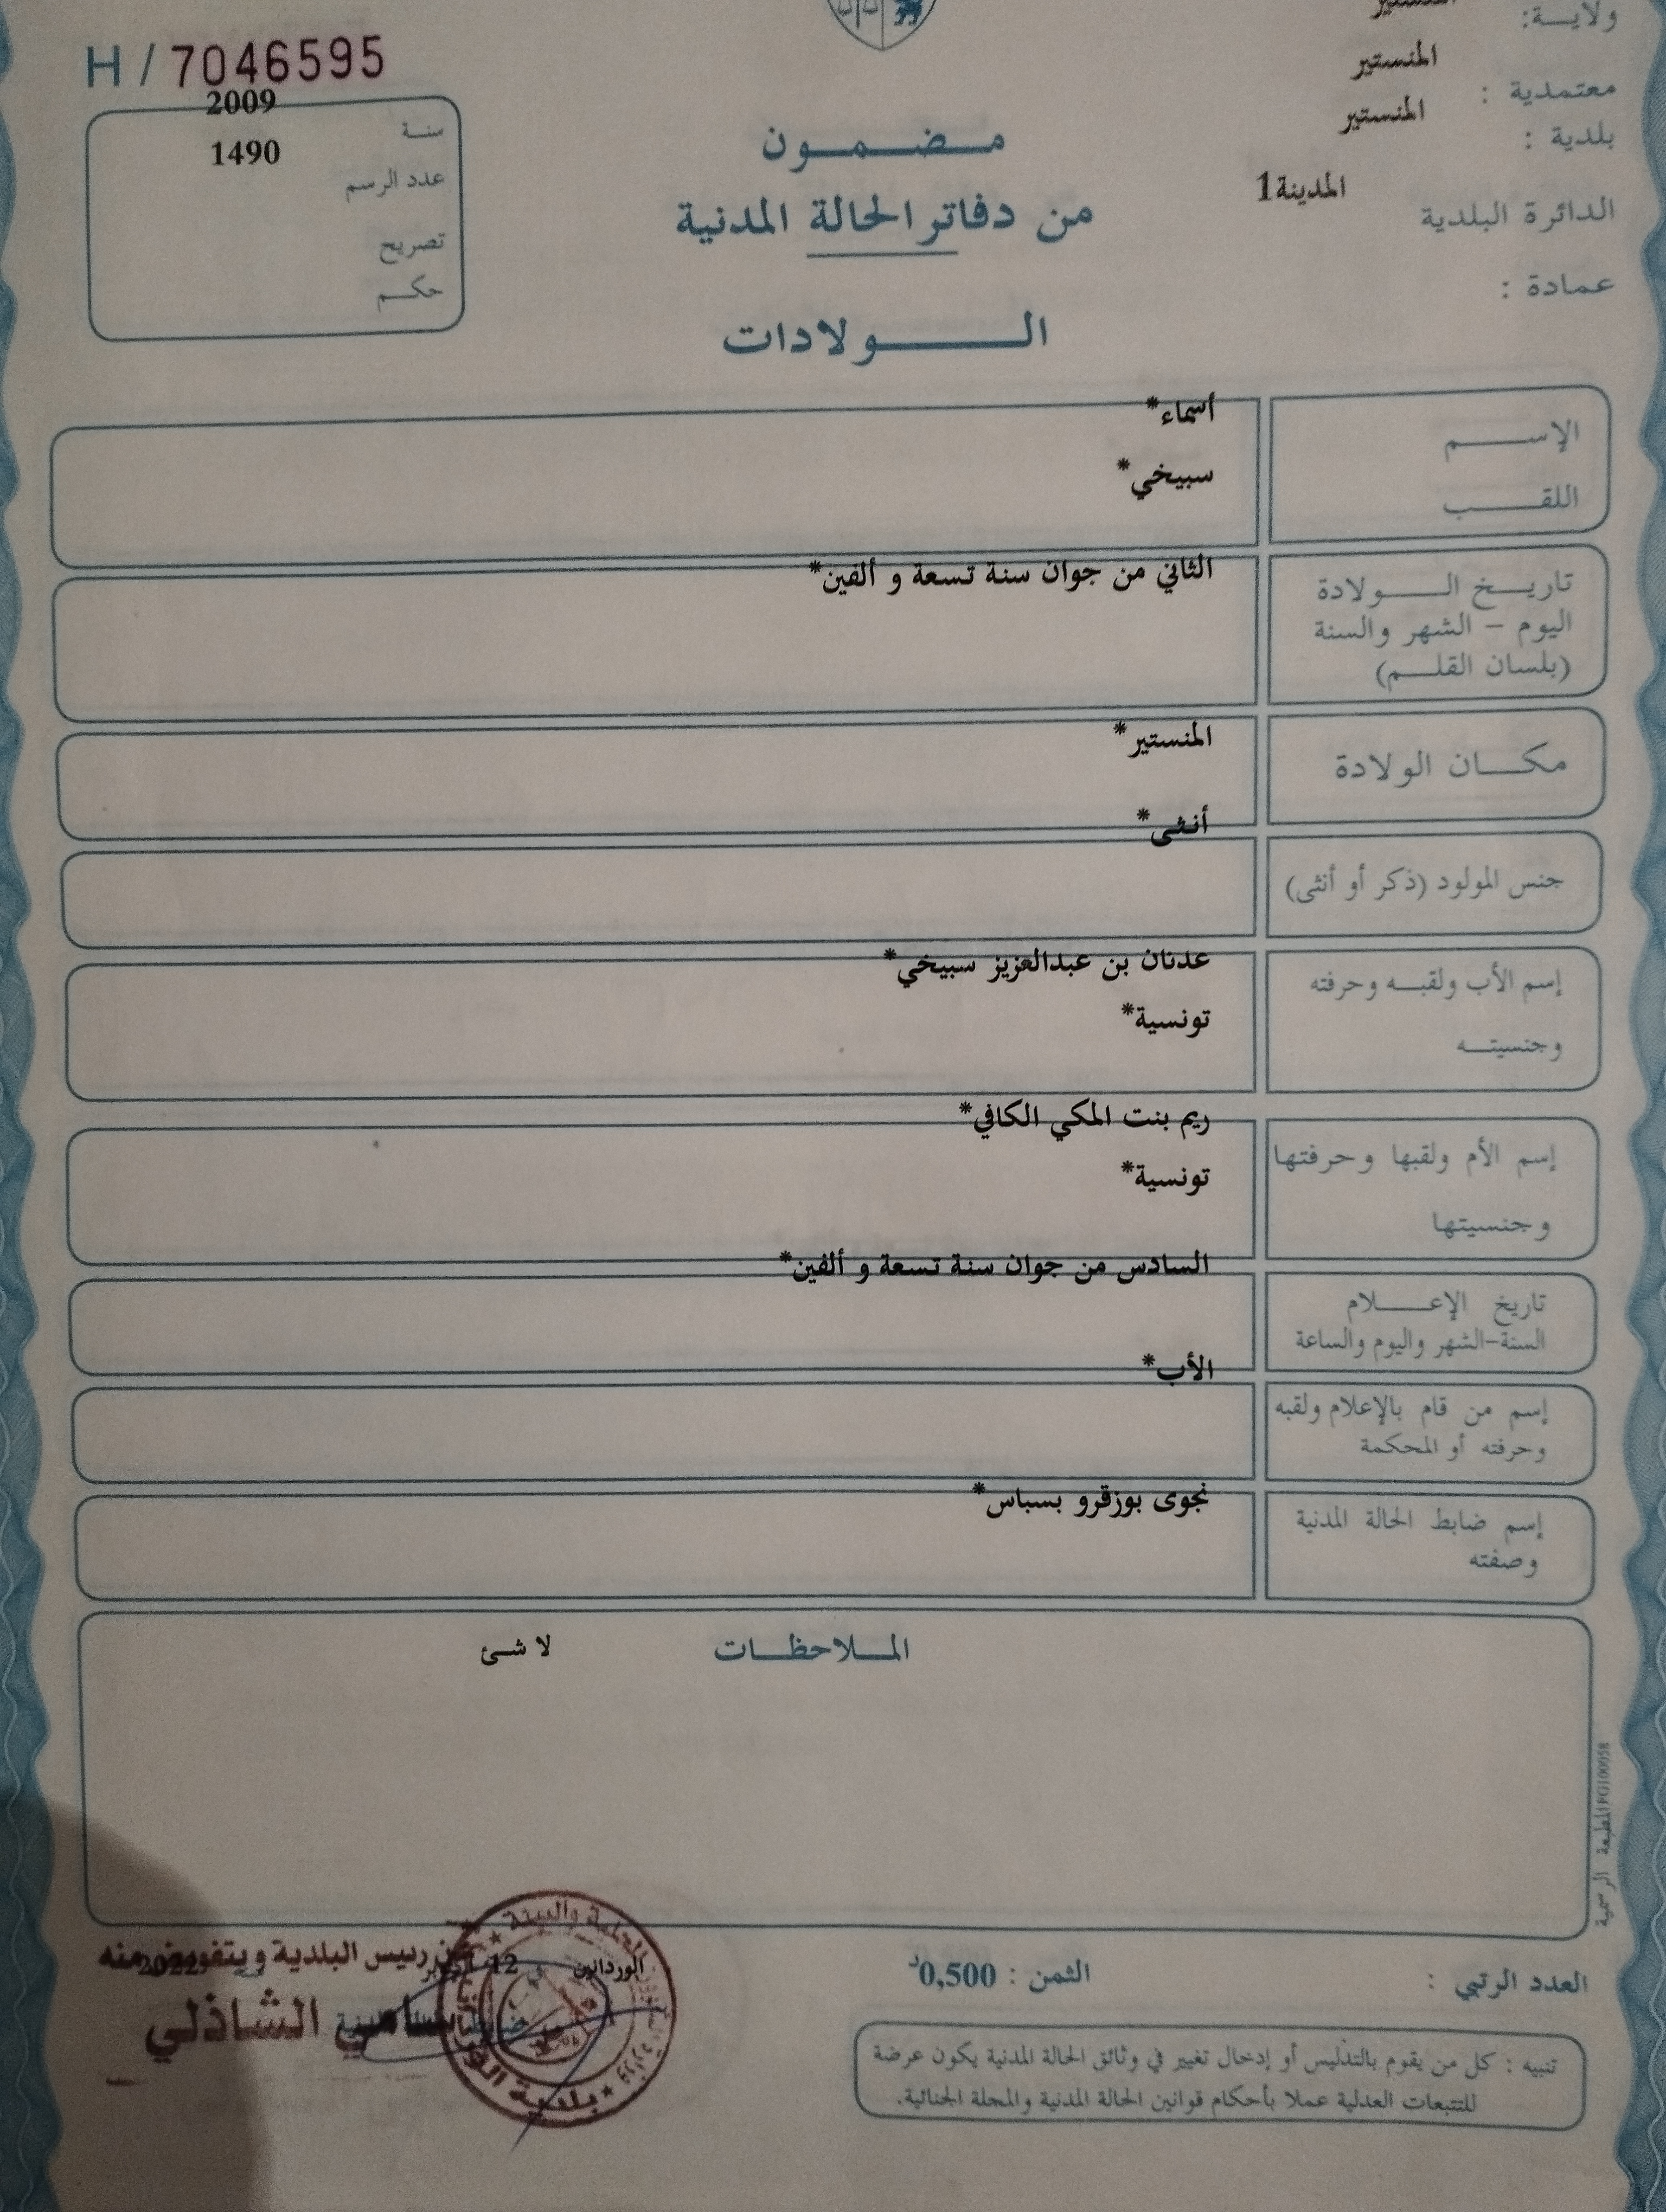 ولاية: المنستير
معتمدية : المنستير
بلدية : المنستير
الدائرة البلدية المدينة1
عمادة :
H / 7046595
سنة 2009
عدد الرسم 1490
تصريح
حكم
مضمون
من دفاتر الحالة المدنية
الولادات
الإسم أسماء*
اللقب سبيخي*
تاريخ الولادة الثاني من جوان سنة تسعة و ألفين*
اليوم – الشهر والسنة
(بلسان القلم)
مكان الولادة المنستير*
جنس المولود (ذكر أو أنثى) أنثى*
إسم الأب ولقبه وحرفته عدنان بن عبدالعزيز سبيخي*
وجنسيته تونسية*
إسم الأم ولقبها وحرفتها ريم بنت المكي الكافي*
وجنسيتها تونسية*
تاريخ الإعلام السادس من جوان سنة تسعة و ألفين*
السنة-الشهر واليوم والساعة
إسم من قام بالإعلام ولقبه الأب*
وحرفته أو المحكمة
إسم ضابط الحالة المدنية نجوى بوزقرو بسباس*
وصفته
الملاحظات لا شئ
المطبعة الرسمية
العدد الرتبي :
الثمن : 0,500د
تنبيه : كل من يقوم بالتدليس أو إدخال تغيير في وثائق الحالة المدنية يكون عرضة
للتتبعات العدلية عملا بأحكام قوانين الحالة المدنية والمجلة الجنائية.
الوردانين في 12 2022
عن رئيس البلدية وبتفويض منه
سامي الشاذلي
بلدية الوردانين